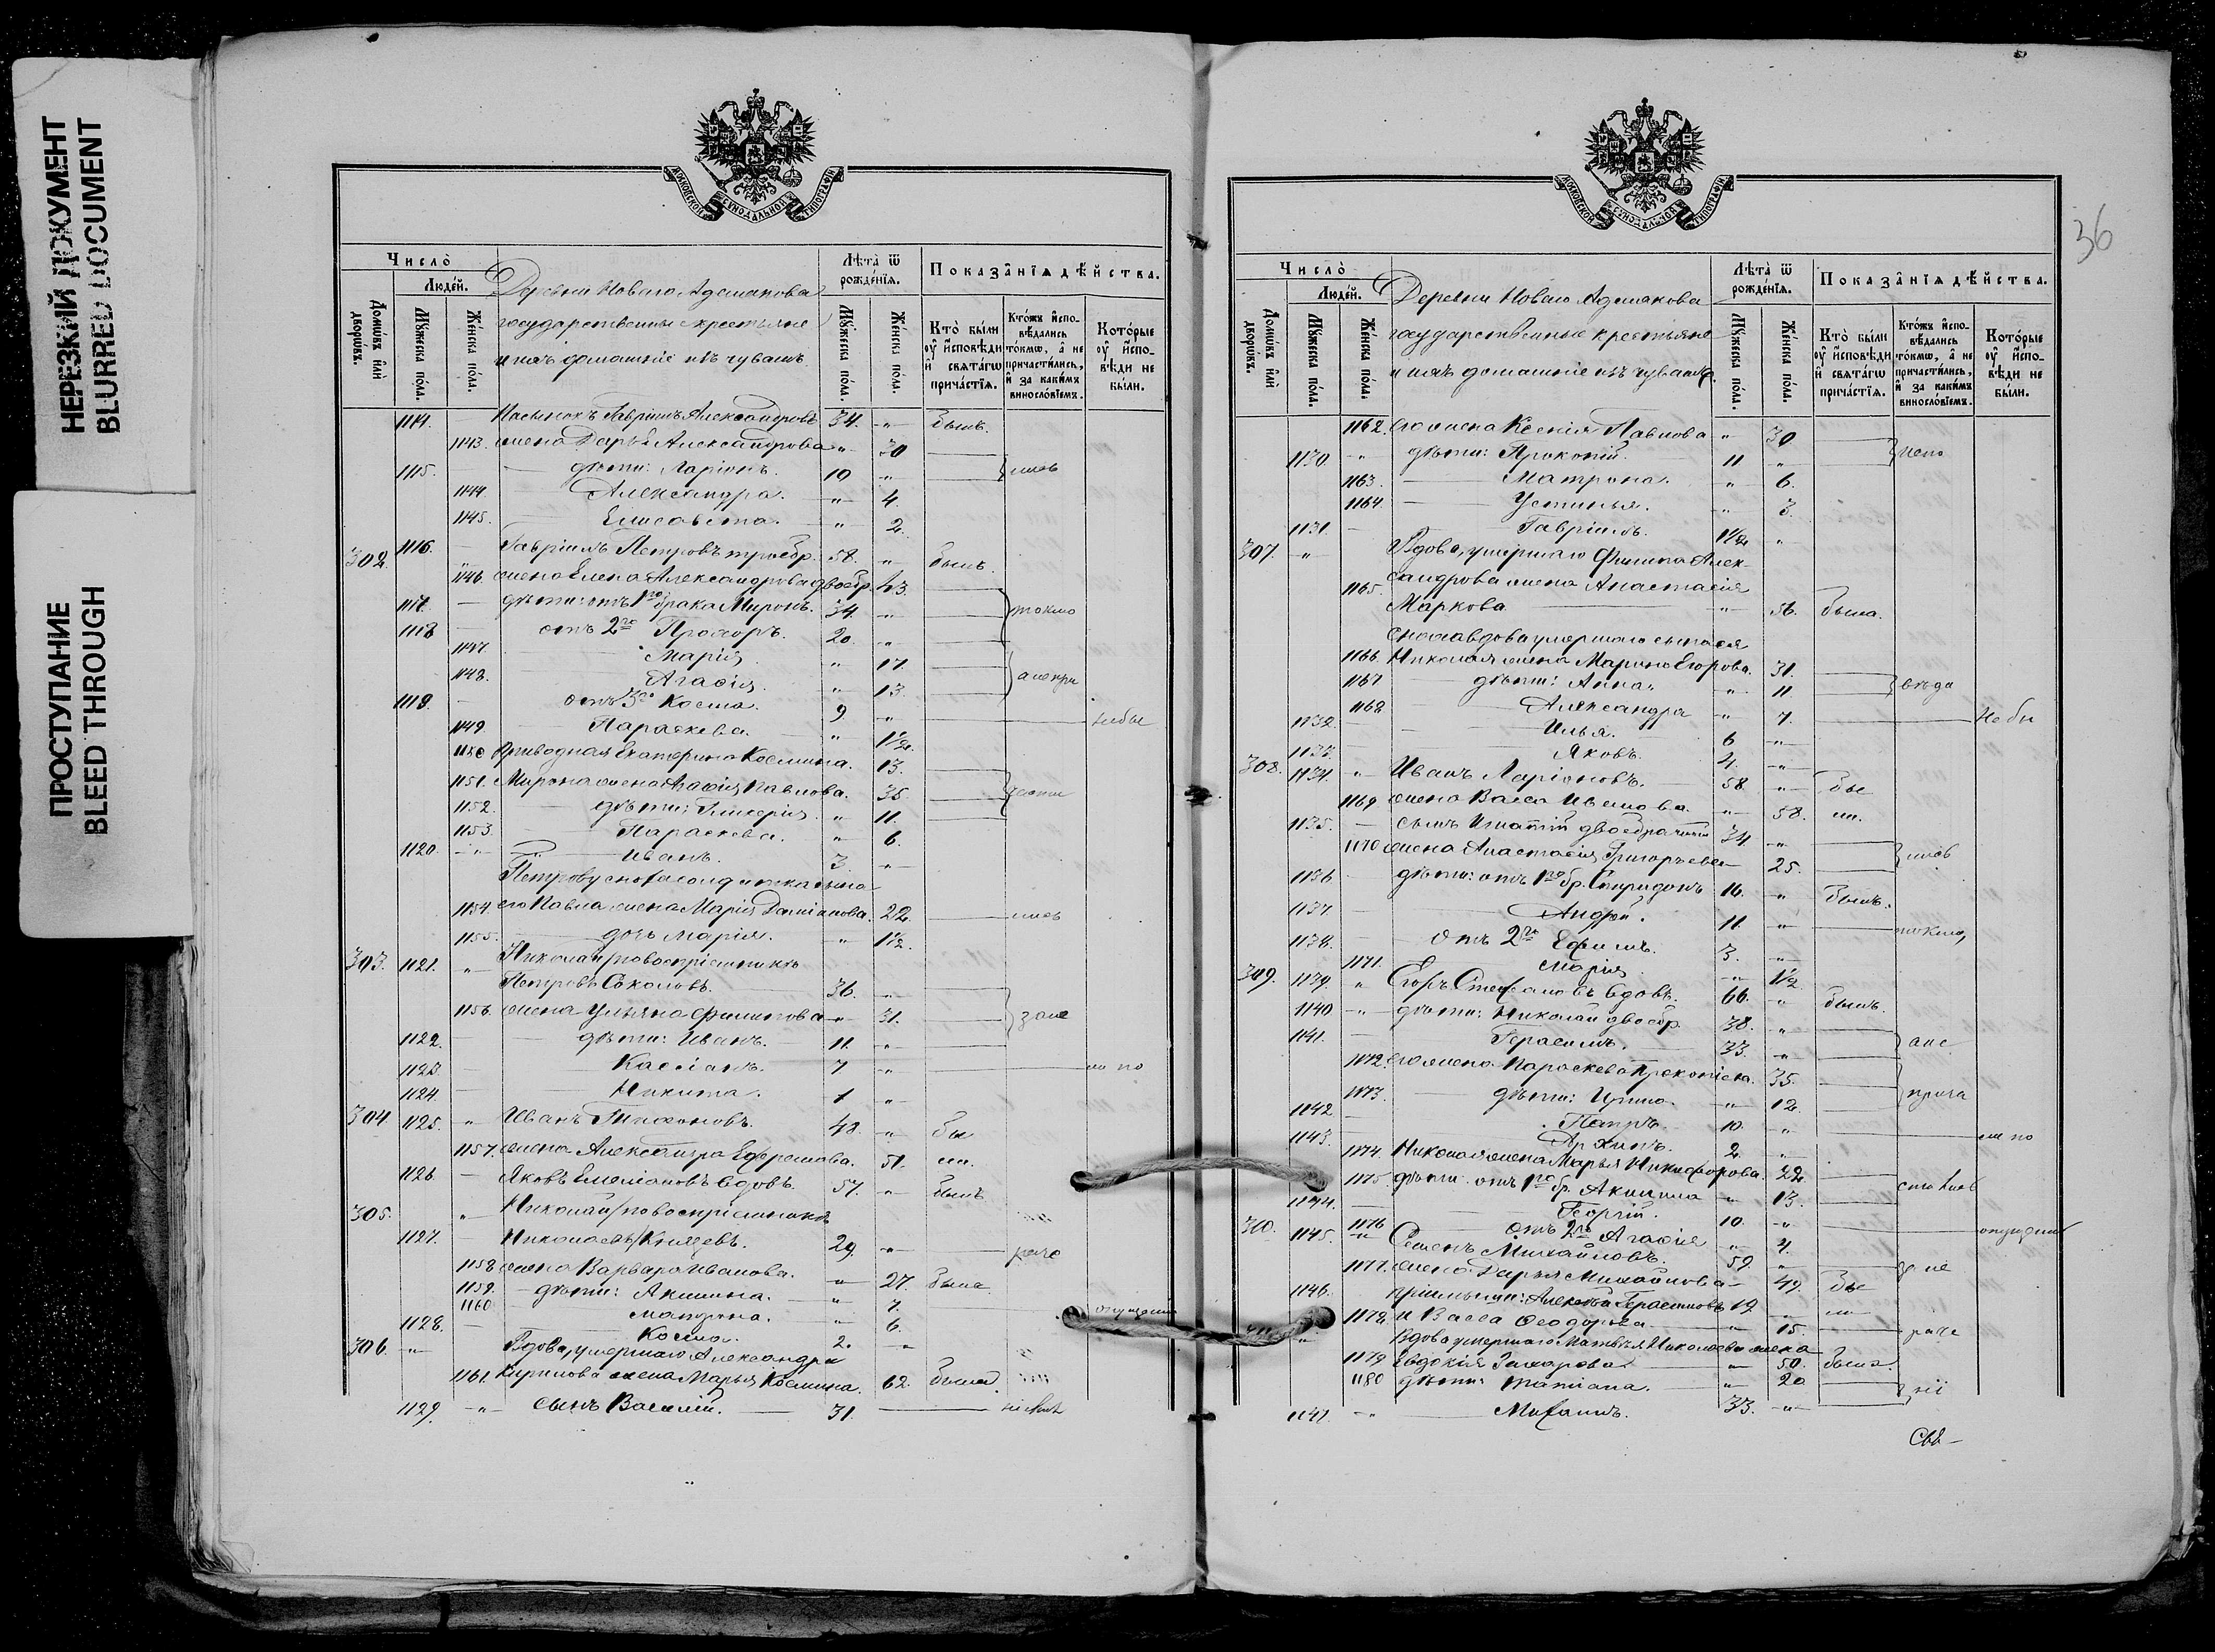 НЕРЕЗКИЙ ДОКУМЕНТ
BLURRED DOCUMENT
ПРОСТУПАНИЕ
BLEED THROUGH
МОСКОВСКОЙ СѴНОДАЛЬНОЙ ТИПОГРАФІИ
Число̀
Люде́й.
Домѡ́въ и҆лѝ дворѡ́въ.
Мꙋ́жеска по́ла.
Же́нска по́ла.
Деревни Новаго Адсмакова
государственные крестьяне
и ихъ домашніе изъ чувашъ
Лѣ́та ѿ рожде́нїѧ.
Мꙋ́жеска по́ла.
Же́нска по́ла.
Показа̑нїѧ дѣ́йства.
Кто̀ бы́ли оу҆ и҆́сповѣди и҆ свѧта́гѡ прича́стїѧ.
Кто́жъ и҆спо­вѣ́дались то́кмѡ, а҆ не причасти́лись, и҆ за каки́мъ виносло́вїемъ.
Кото́рые оу҆ и҆́спо­вѣди не бы́ли.
1114. — Пасынокъ Гавріилъ Александровъ 34. -"- былъ.
1143. жена Дарья Александрова -"- 30
1115. — дѣти: Ларіонъ. 10 -"-
1144 — Александра. -"- 4.
1145. — Елисавета. " 2.
302. 1116. — Гавріилъ Петровъ троебр. 58. " былъ.
1146. жена Елена Александрова двоебр. 43.
1117. — дѣти: отъ 1го брака Миронъ. 34. -"- токмо
1118 — отъ 2го Прохоръ. 20. -"-
1147 Марія. " 17.
1148. Агафія. " 13.
1119. — отъ 3го Косма. 9 -"- небы
1149 — Параскева. " 1½.
1150 Приводная Екатерина Космина. 13.
1151. Мирона жена Агафія Павлова. 35.
1152. — дѣти: Гликерія. " 11.
1153. — Параскева. " 6.
1120. -"- Иванъ. 3. -"-
Петрову сноха солдатка сына
1154. его Павла жена Марія Даміанова. 22.
1155. — дочь Марія. " 1½.
303. 1121. " Николай /новокрещенникъ
Петровъ Соколовъ. 36. -"-
1156. жена Ульяна Филипова -"- 31.
1122. — дѣти: Иванъ. 11. -"-
1123. — Кассіанъ. 7 -"- ли по
1124. — Никита. 1 -"-
304. 1125. " Иванъ Тихоновъ. 48. -"- бы
1157. жена Александра Ефремова. 51. ли.
1126. — Яковъ Емеліановъ вдовъ. 57. -"- былъ
305. "
1127. — Николаевъ/Князевъ. 29. -"-
1158 жена Варвара Иванова. -"- 27. была
1159. — дѣти: Акилина. -"- 7.
1160 Матрона. -"- 6. опущенію
1128. — Косма. 2. -"-
306. -"- Вдова, умершаго Александра
1161. Кирилова жена Марья Космина. 62. была
1129. -"- сынъ Василій. 31.
36
МОСКОВСКОЙ СѴНОДАЛЬНОЙ ТИПОГРАФІИ
Число̀
Люде́й.
Домѡ́въ и҆лѝ дворѡ́въ.
Мꙋ́жеска по́ла.
Же́нска по́ла.
Деревни Новаго Адсмакова
государственные крестьяне
и ихъ домашніе изъ чувашъ.
Лѣ́та ѿ рожде́нїѧ.
Мꙋ́жеска по́ла.
Же́нска по́ла.
Показа̑нїѧ дѣ́йства.
Кто̀ бы́ли оу҆ и҆́сповѣди и҆ свѧта́гѡ прича́стїѧ.
Кто́жъ и҆спо­вѣ́дались то́кмѡ, а҆ не причасти́лись, и҆ за каки́мъ виносло́вїемъ.
Кото́рые оу҆ и҆́спо­вѣди не бы́ли.
1162. его жена Ксенія Павлова " 30
1130. -"- дѣти: Прокопій. 11 " испо
1163. — Матрона. " 6.
1164. — Устинья. " 3.
1131. — Гавріилъ. 1½ "
307. " Вдова, умершаго Филипа Алек-
сандрова жена Анастасія
1165. Маркова " 56. была.
сноха вдова умершаго сына ея
1166. Николая жена Марина Егорова. 31.
1167 — дѣти: Анна. " 11 вѣда
1168 — Александра " 7.
1132. — Илья. 6 -"- Не бы
1133. — Яковъ. 4. -"-
308. 1134. " Иванъ Ларіоновъ. 58. -"- бы
1169 жена Васса Ивanова. -"- 58. ли.
1135. — сынъ Игнатій двоебрачный 34 -"-
1170 жена Анастасія Григорьева 25. лись
1136. — дѣти: отъ 1го бр. Спиридонъ 16. " былъ.
1137. — Андрей. 11. -"- токмо,
1138. — отъ 2го Ефимъ. 3. -"-
1171. — Марія. -"- 1½
309. 1139. " Егоръ Стефановъ вдовъ. 66. " былъ.
1140 -"- дѣти: Николай двоебр. 38. "
1141. Герасимъ. 33. -"- а не
1172. его жена Параскева Прокопіева. 35.
1173. — дѣти: Ирина. -"- 12. прича
1142 — Петръ. 10. -"-
1143. — Архипъ. 2. -"- ли по
1174. Николая жена Марья Никифорова. 22.
1175. дѣти отъ 1го бр. Акилина -"- 13.
1144. — Георгій. 10. -"- опущенію
1176 отъ 2го Агафія " 4.
310. 1145. " Семенъ Михайловъ. 59. "
1177. жена Дарья Михайлова — 49. бы
1146. пріемыши: Алексѣй Герасимовъ 19. " ли
1178. и Васса Ѳеодорова -"- 15.
" Вдова умершаго Матвѣя Николаева жена
1179 Евдокія Захарова -"- 50. была.
1180 дѣти: Татіана. -"- 20
1147. -"- Михаилъ. 33. -"-